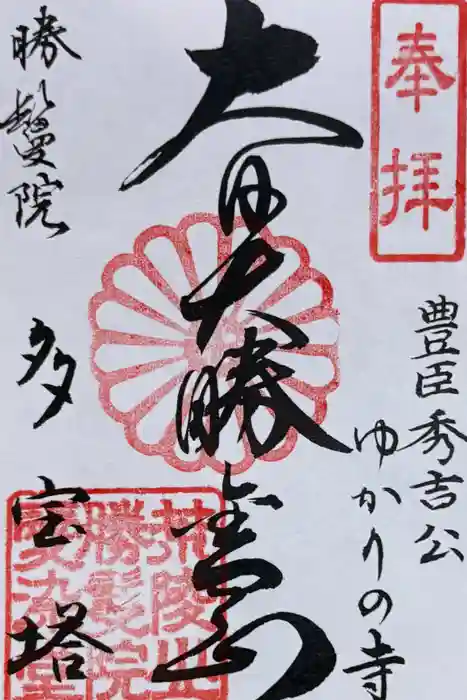 奉拝
豊臣秀吉公
ゆかりの寺
大日大勝金剛
荒陵山
勝鬘院
愛染堂
勝鬘院
多宝塔